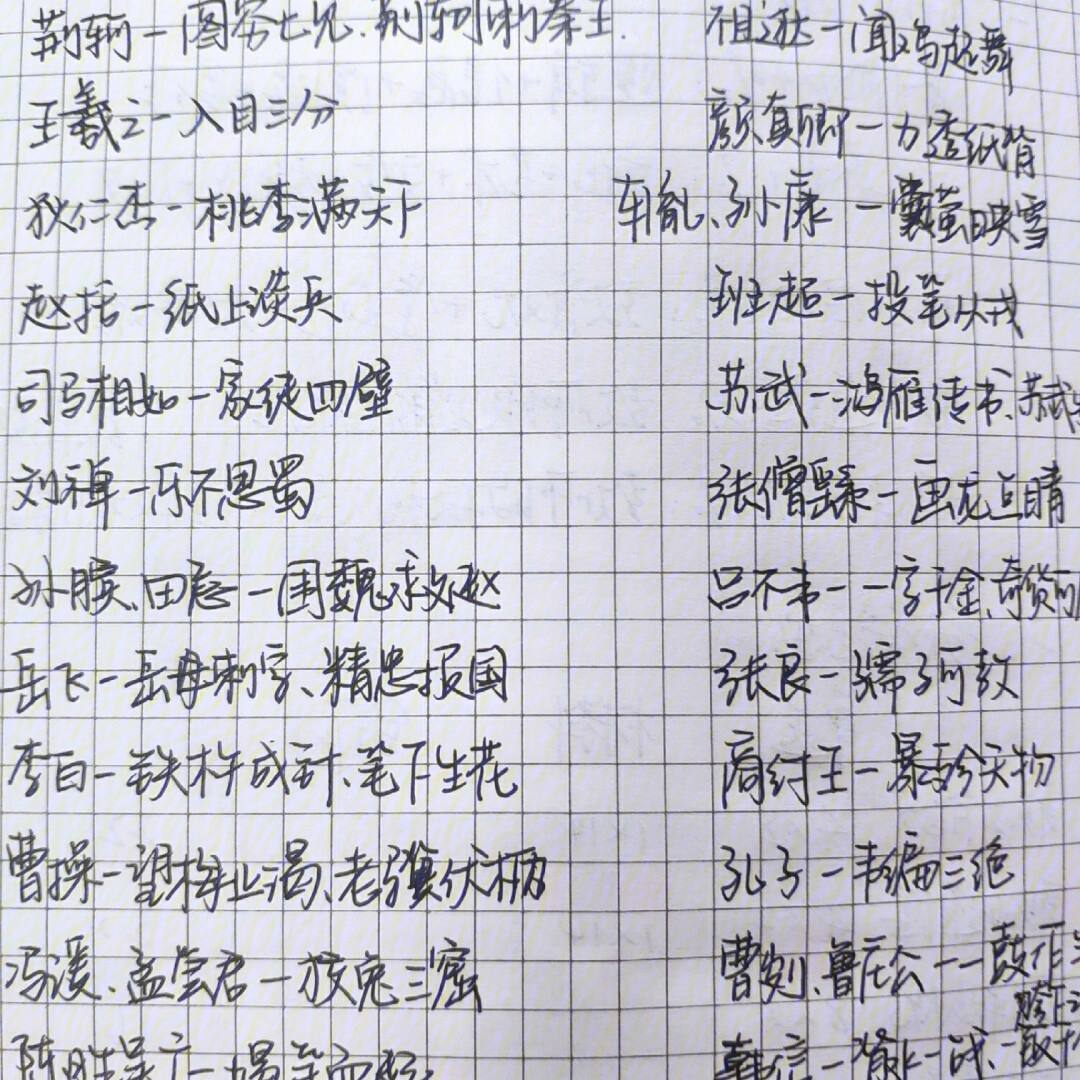 荆轲—图穷匕见、荆轲刺秦王
王羲之—入目三分
狄仁杰—桃李满天下
赵括—纸上谈兵
司马相如—家徒四壁
刘禅—乐不思蜀
孙膑、田忌—围魏求赵
岳飞—岳母刺字、精忠报国
李白—铁杵成针、笔下生花
曹操—望梅止渴、老骥伏枥
冯谖、孟尝君—狡兔三窟
陈胜吴广—揭竿而起
祖逖—闻鸡起舞
颜真卿—力透纸背
车胤、孙康—囊萤映雪
班超—投笔从戎
苏武—鸿雁传书、苏武
张僧繇—画龙点睛
吕不韦—一字千金、奇货可
张良—孺子可教
商纣王—暴殄天物
孔子—韦编三绝
曹刿、鲁庄公—一鼓作
韩信—背水一战、